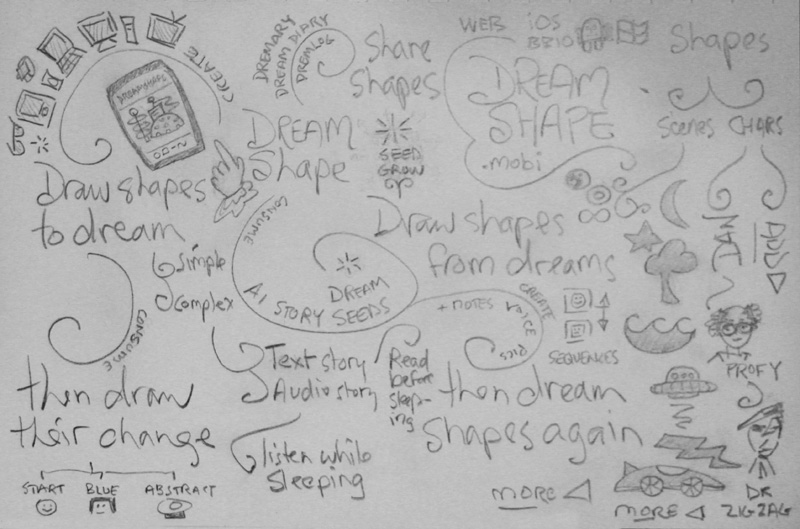 C(CREATE
DREMARY
DREAM DIARY
DREAMLOG
Share
Shapes
DREAM
Shape
SEED
GROW
WEB
iOS
BB10
DREAM
SHAPE
.mobi
Shapes
Scenes
CHARS
IAN
ADD
Draw shapes
to dream
Simple
Complex
CONSUME
CONSUME
AI STORY SEEDS
DREAM
Draw shapes
from dreams
+ NOTES
VOICE
PICS
CREATE
SEQUENCES
then draw
their change
START
BLUE
ABSTRACT
Text story
Audio story
listen while
Sleeping
Read
before
sleep-
ing
then dream
Shapes again
MORE
PROFY
DR
ZIGZAG
MORE